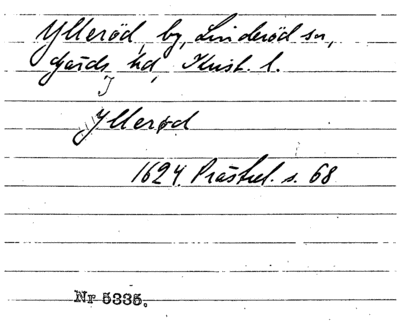 Ylleröd, by, Linderöd sn,
Gärds hd, Krist. l.
Yllerød
1624 Prästrel. s. 68
Nr 5335.